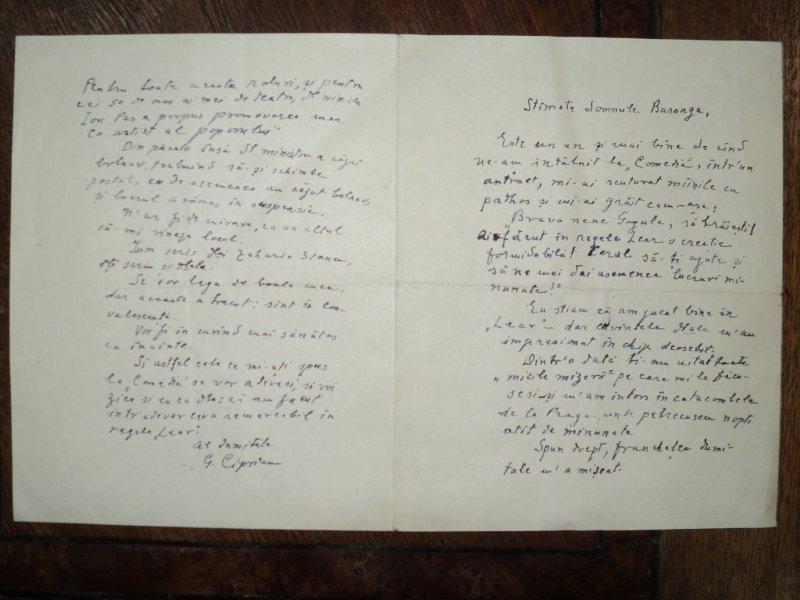 Stimate domnule Baranga,
Este un an și mai bine de cînd
ne-am întâlnit la „Comedia", într'un
antract, mi-ai scuturat mîinile cu
pathos și mi-ai grăit cam-așa:
„Bravo nene Gogule, să trăiești!
Ai făcut în regele Lear o creație
formidabilă! Cerul să-ți ajute și
să ne mai dai asemenea lucruri mi-
nunate!"
Eu știam că am jucat bine în
„Lear" – dar cuvintele Dtale m'au
impresionat în chip deosebit.
Dintr'o dată ți-am uitat toate
„micile mizerii" pe care mi le făcu-
seși și m'am întors în catacombele
de la Praga unde petrecusem nopți
atît de minunate
Spun drept, franchețea dumi-
tale m'a mișcat.
Pentru toate aceste roluri, și pentru
cei 50 de ani ai mei de teatru, Dl ministru
Ion Pas a propus promovarea mea
ca artist al poporului
Din păcate însă Dl ministru a căzut
bolnav, trebuind să-și schimbe
postul, eu de asemenea am căzut bolnav,
și lucrul a rămas în suspensie.
N'ar fi de mirare, ca un altul
să-mi vineze locul.
I-am scris lui Zaharia Stancu,
îți scriu și Dtale.
Se vor lega de boala mea,
dar aceasta a trecut: sînt în con-
valescență.
Voi fi în curînd mai sănătos
ca înainte.
Și astfel cele ce mi-ați spus
la „Comedia" se vor adeveri, și voi
zice și eu ca Dta: că am făcut
într'adevăr ceva remarcabil în
regele „Lear".
Al Dumitale
G. Ciprian